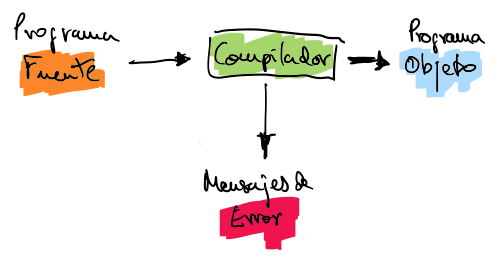 Programa
Fuente
Compilador
Programa
Objeto
Mensajes de
Error